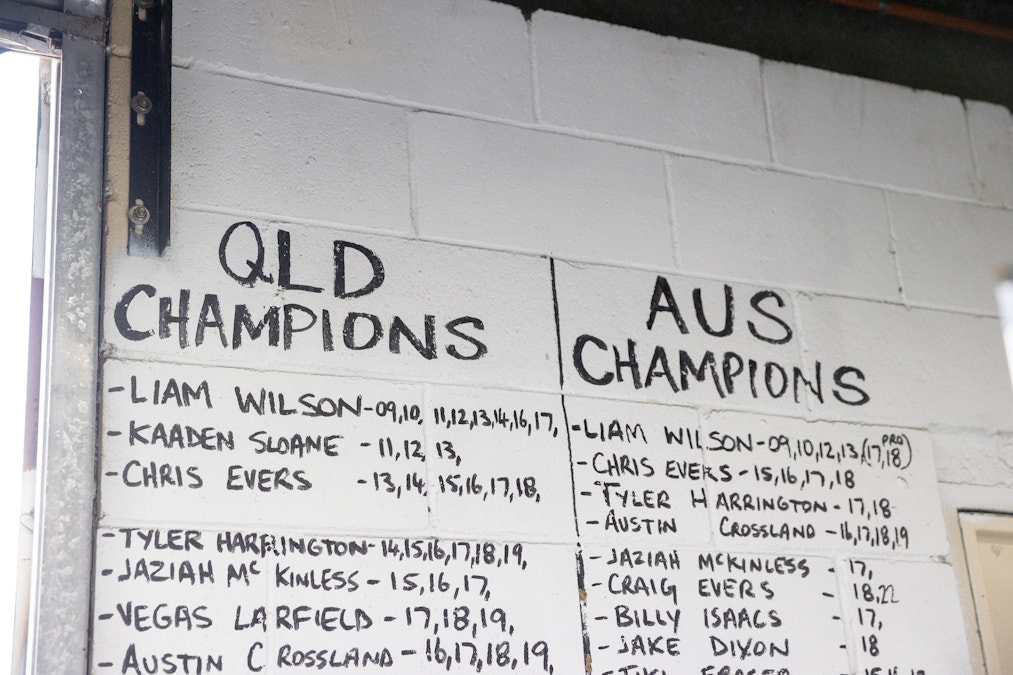 QLD
CHAMPIONS
-LIAM WILSON-09,10, 11,12,13,14,16,17,
-KAADEN SLOANE -11,12, 13,
-CHRIS EVERS -13,14, 15,16,17,18,
-TYLER HARRINGTON-14,15,16,17,18,19,
-JAZIAH McKINLESS-15,16,17,
-VEGAS LARFIELD-17,18,19,
-AUSTIN CROSSLAND-16,17,18,19,
AUS
CHAMPIONS
-LIAM WILSON-09,10,12,13,(17,18 PRO)
-CHRIS EVERS-15,16,17,18
-TYLER HARRINGTON-17,18
-AUSTIN CROSSLAND-16,17,18,19
-JAZIAH McKINLESS -17,
-CRAIG EVERS -18,22
-BILLY ISAACS -17,
-JAKE DIXON -18